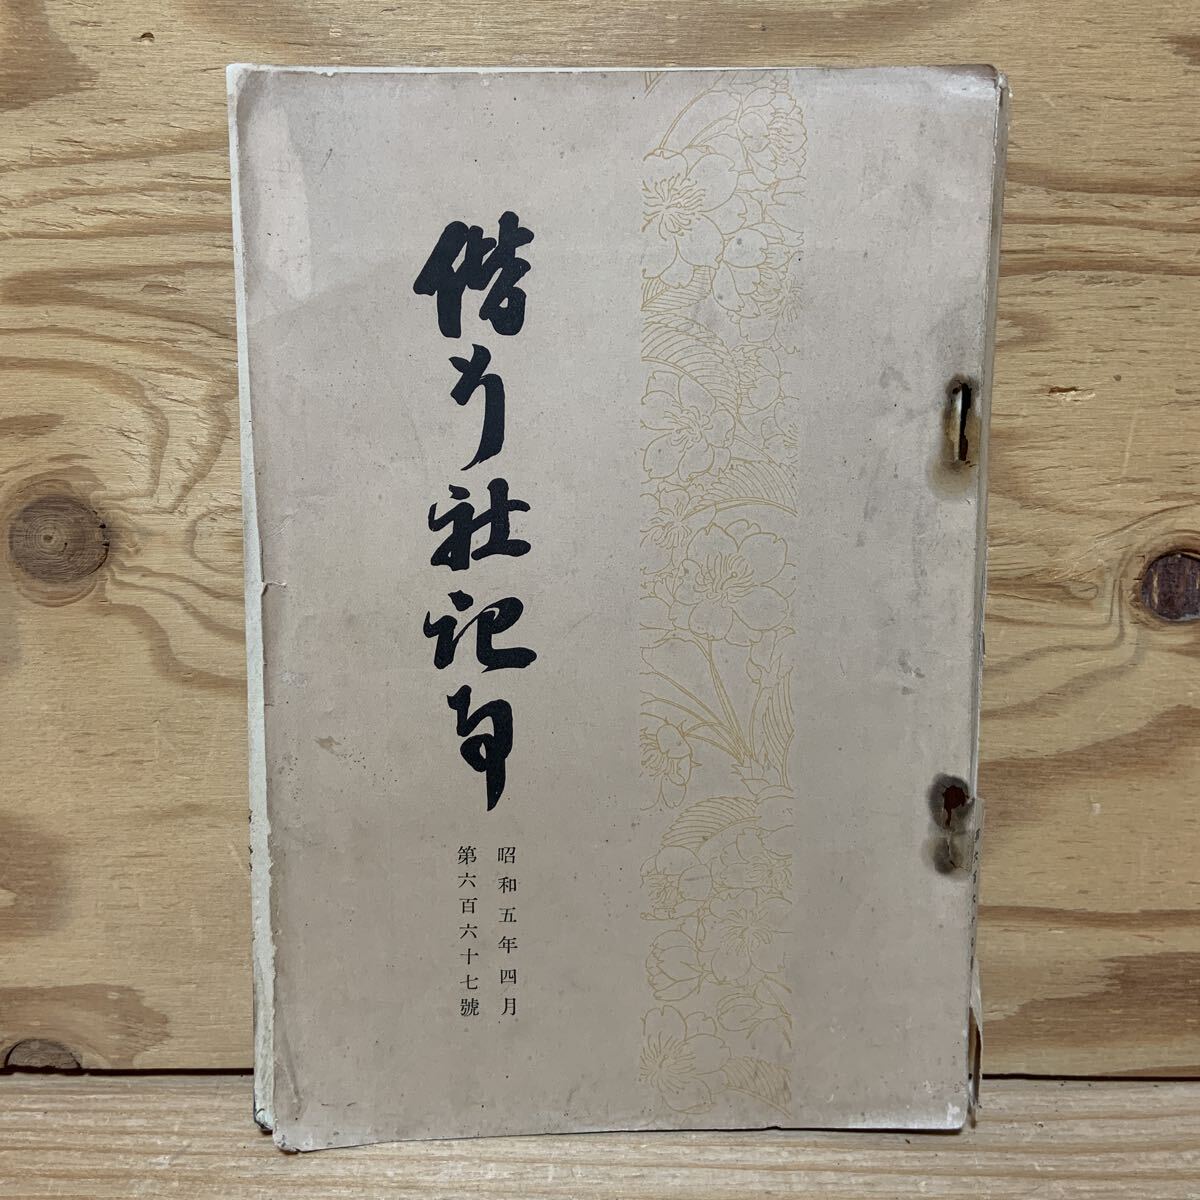 偕行社記事
昭和五年四月
第六百六十七號